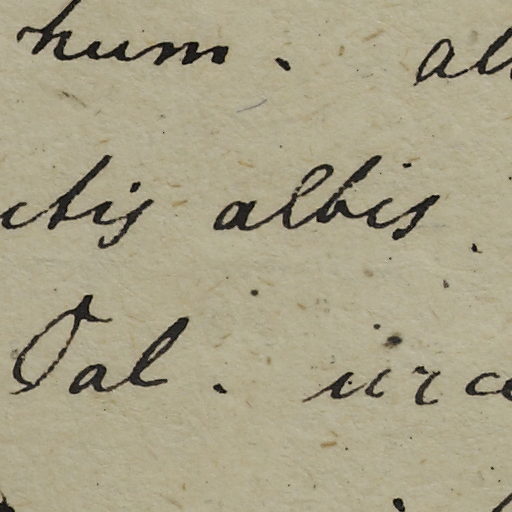 hum. al
ctis albis.
Pal. circ